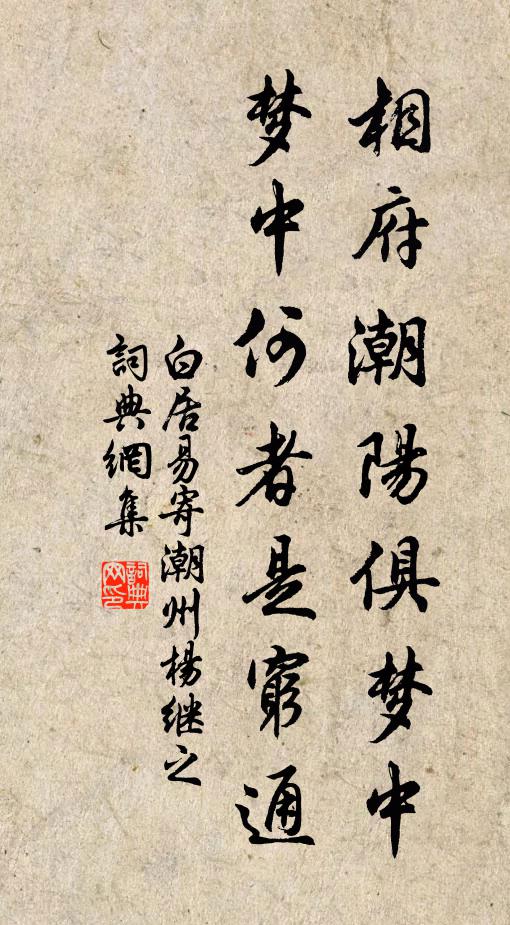 相府潮陽俱梦中
梦中何者是窮通
白居易寄潮州楊继之
詞典網集
詞典网印